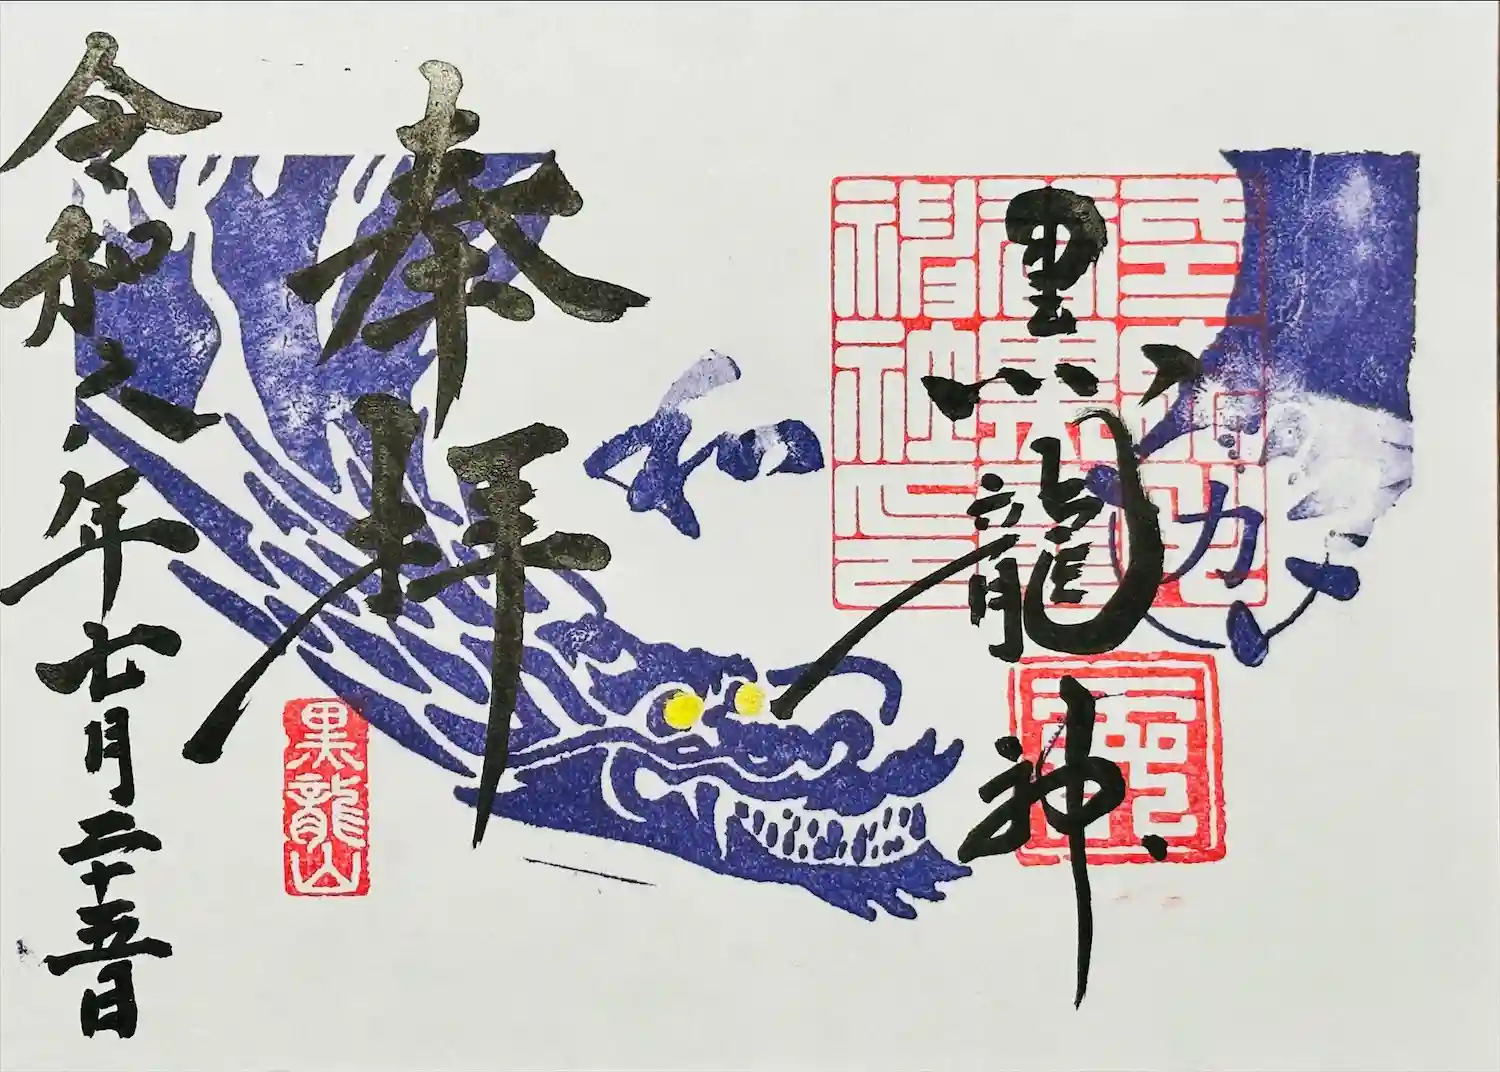 黒龍神
和
奉拝
黒龍山
令和六年七月二十五日